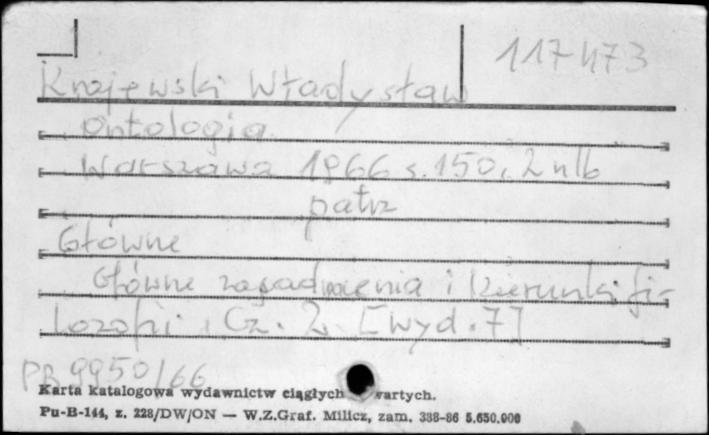 117473
Krajewski Władysław
Ontologia
Warszawa 1966 s. 150, 2 nlb
patrz
Główne
Główne zagadnienia i kierunki fi-
lozofii. Cz. 2. [wyd. 7]
PR 9950/66
Karta katalogowa wydawnictw ciągłych wartych.
Pu-B-144, z. 228/DW/ON — W.Z.Graf. Milicz, zam. 338-86 5.650.000